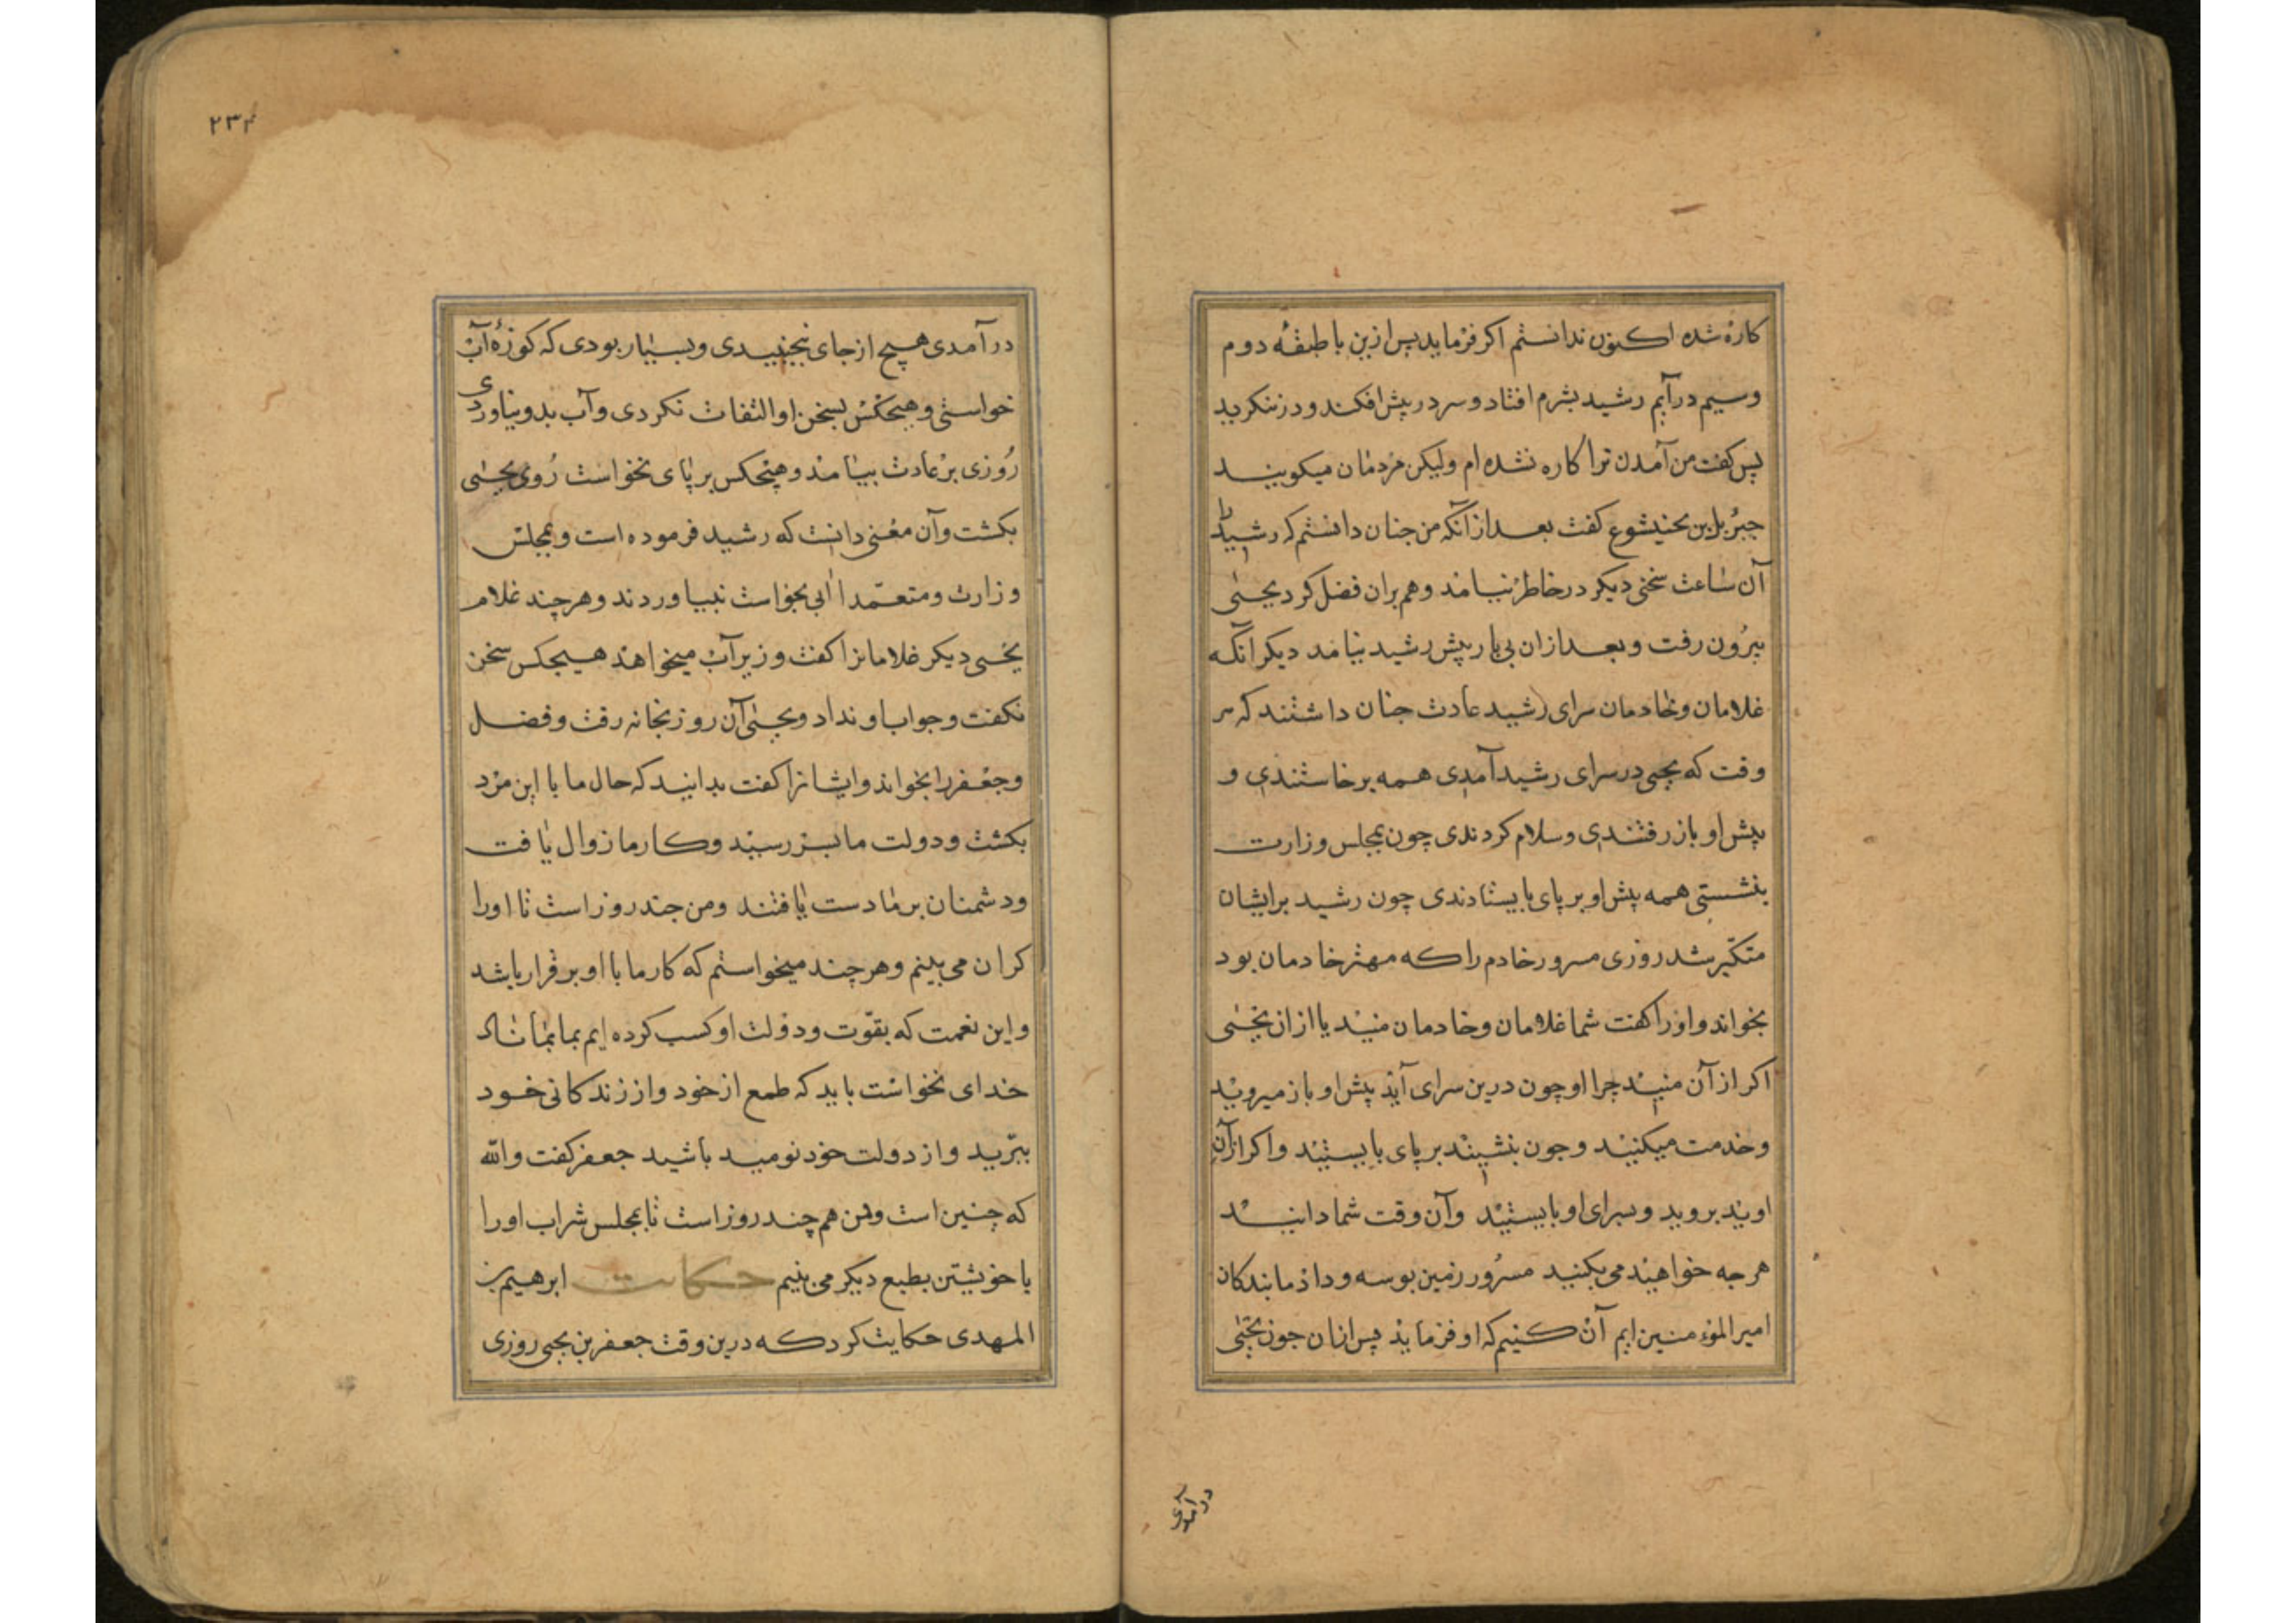 کاره شده اکنون ندانستم اکر فرماید پس ازین با طبقه دوم
وسیم درآیم رشید بشرم افتاد و سر در پیش افکند و در ننکرید
پس کفت من آمدن ترا کاره نشده ام ولیکن مردمان میکویند
جبریل بن بختیشوع کفت بعد از آنکه من جنان دانستم که رشید را
آن ساعت سخنی دیکر در خاطر نیامد وهم بران فضل کرد یحیی
بیرون رفت و بعد ازان بی بار پیش رشید نیامد دیکر آنکه
غلامان وخادمان سرای رشید عادت جنان داشتند که هر
وقت که یحیی در سرای رشید آمدی همه برخاستندی و
پیش او باز رفتندی وسلام کردندی چون بمجلس وزارت
بنشستی همه پیش او بر پای بایستادندی چون رشید برایشان
متکبّر شد روزی مسرور خادم را که مهتر خادمان بود
بخواند واورا کفت شما غلامان وخادمان منید یا از ان یحیی
اکر از آن منید چرا او چون درین سرای آید پیش او باز میروید
وخدمت میکنید وجون بنشیند بر پای بایستید واکر ازآن
اویید بروید وبسرای او بایستید وآن وقت شما دانید
هرجه خواهید می بکنید مسرور زمین بوسه وداد ما بندکان
امیر المؤمنین ایم آن کنیم که او فرماید پس ازان جون یحیی
درآمدی
۲۳۴
درآمدی هیچ از جای نجنبیدی وبسیار بودی که کوزهٔ آب
خواستی وهیچکس بسخن او التفات نکردی وآب بدو نیاوردی
روزی بر عادت بیامد وهیچکس بر پای نخواست روی یحیی
بکشت وآن معنی دانست که رشید فرموده است و بمجلس
وزارت ومتعمّدا آبی بخواست نیاوردند وهرچند غلام
یحیی دیکر غلامانرا کفت وزیر آب میخواهد هیچکس سخن
نکفت وجواب او نداد ویحیی آن روز بخانه رفت وفضل
وجعفر را بخواند وایشانرا کفت بدانید که حال ما با این مرد
بکشت ودولت ما بسر رسید وکار ما زوال یافت
ودشمنان بر ما دست یافتند ومن جند روز است تا اورا
کران می بینم وهرچند میخواستم که کار ما با او بر قرار باشد
واین نعمت که بقوّت ودولت او کسب کرده ایم بما بماند
خدای نخواست باید که طمع از خود واز زندکانی خود
ببرّید واز دولت خود نومید باشید جعفر کفت والله
که چنین است ومن هم چند روز است تا بمجلس شراب اورا
با خویشتن بطبع دیکر می بینم حکایت ابرهیم بن
المهدی حکایت کرد که درین وقت جعفر بن یحیی روزی